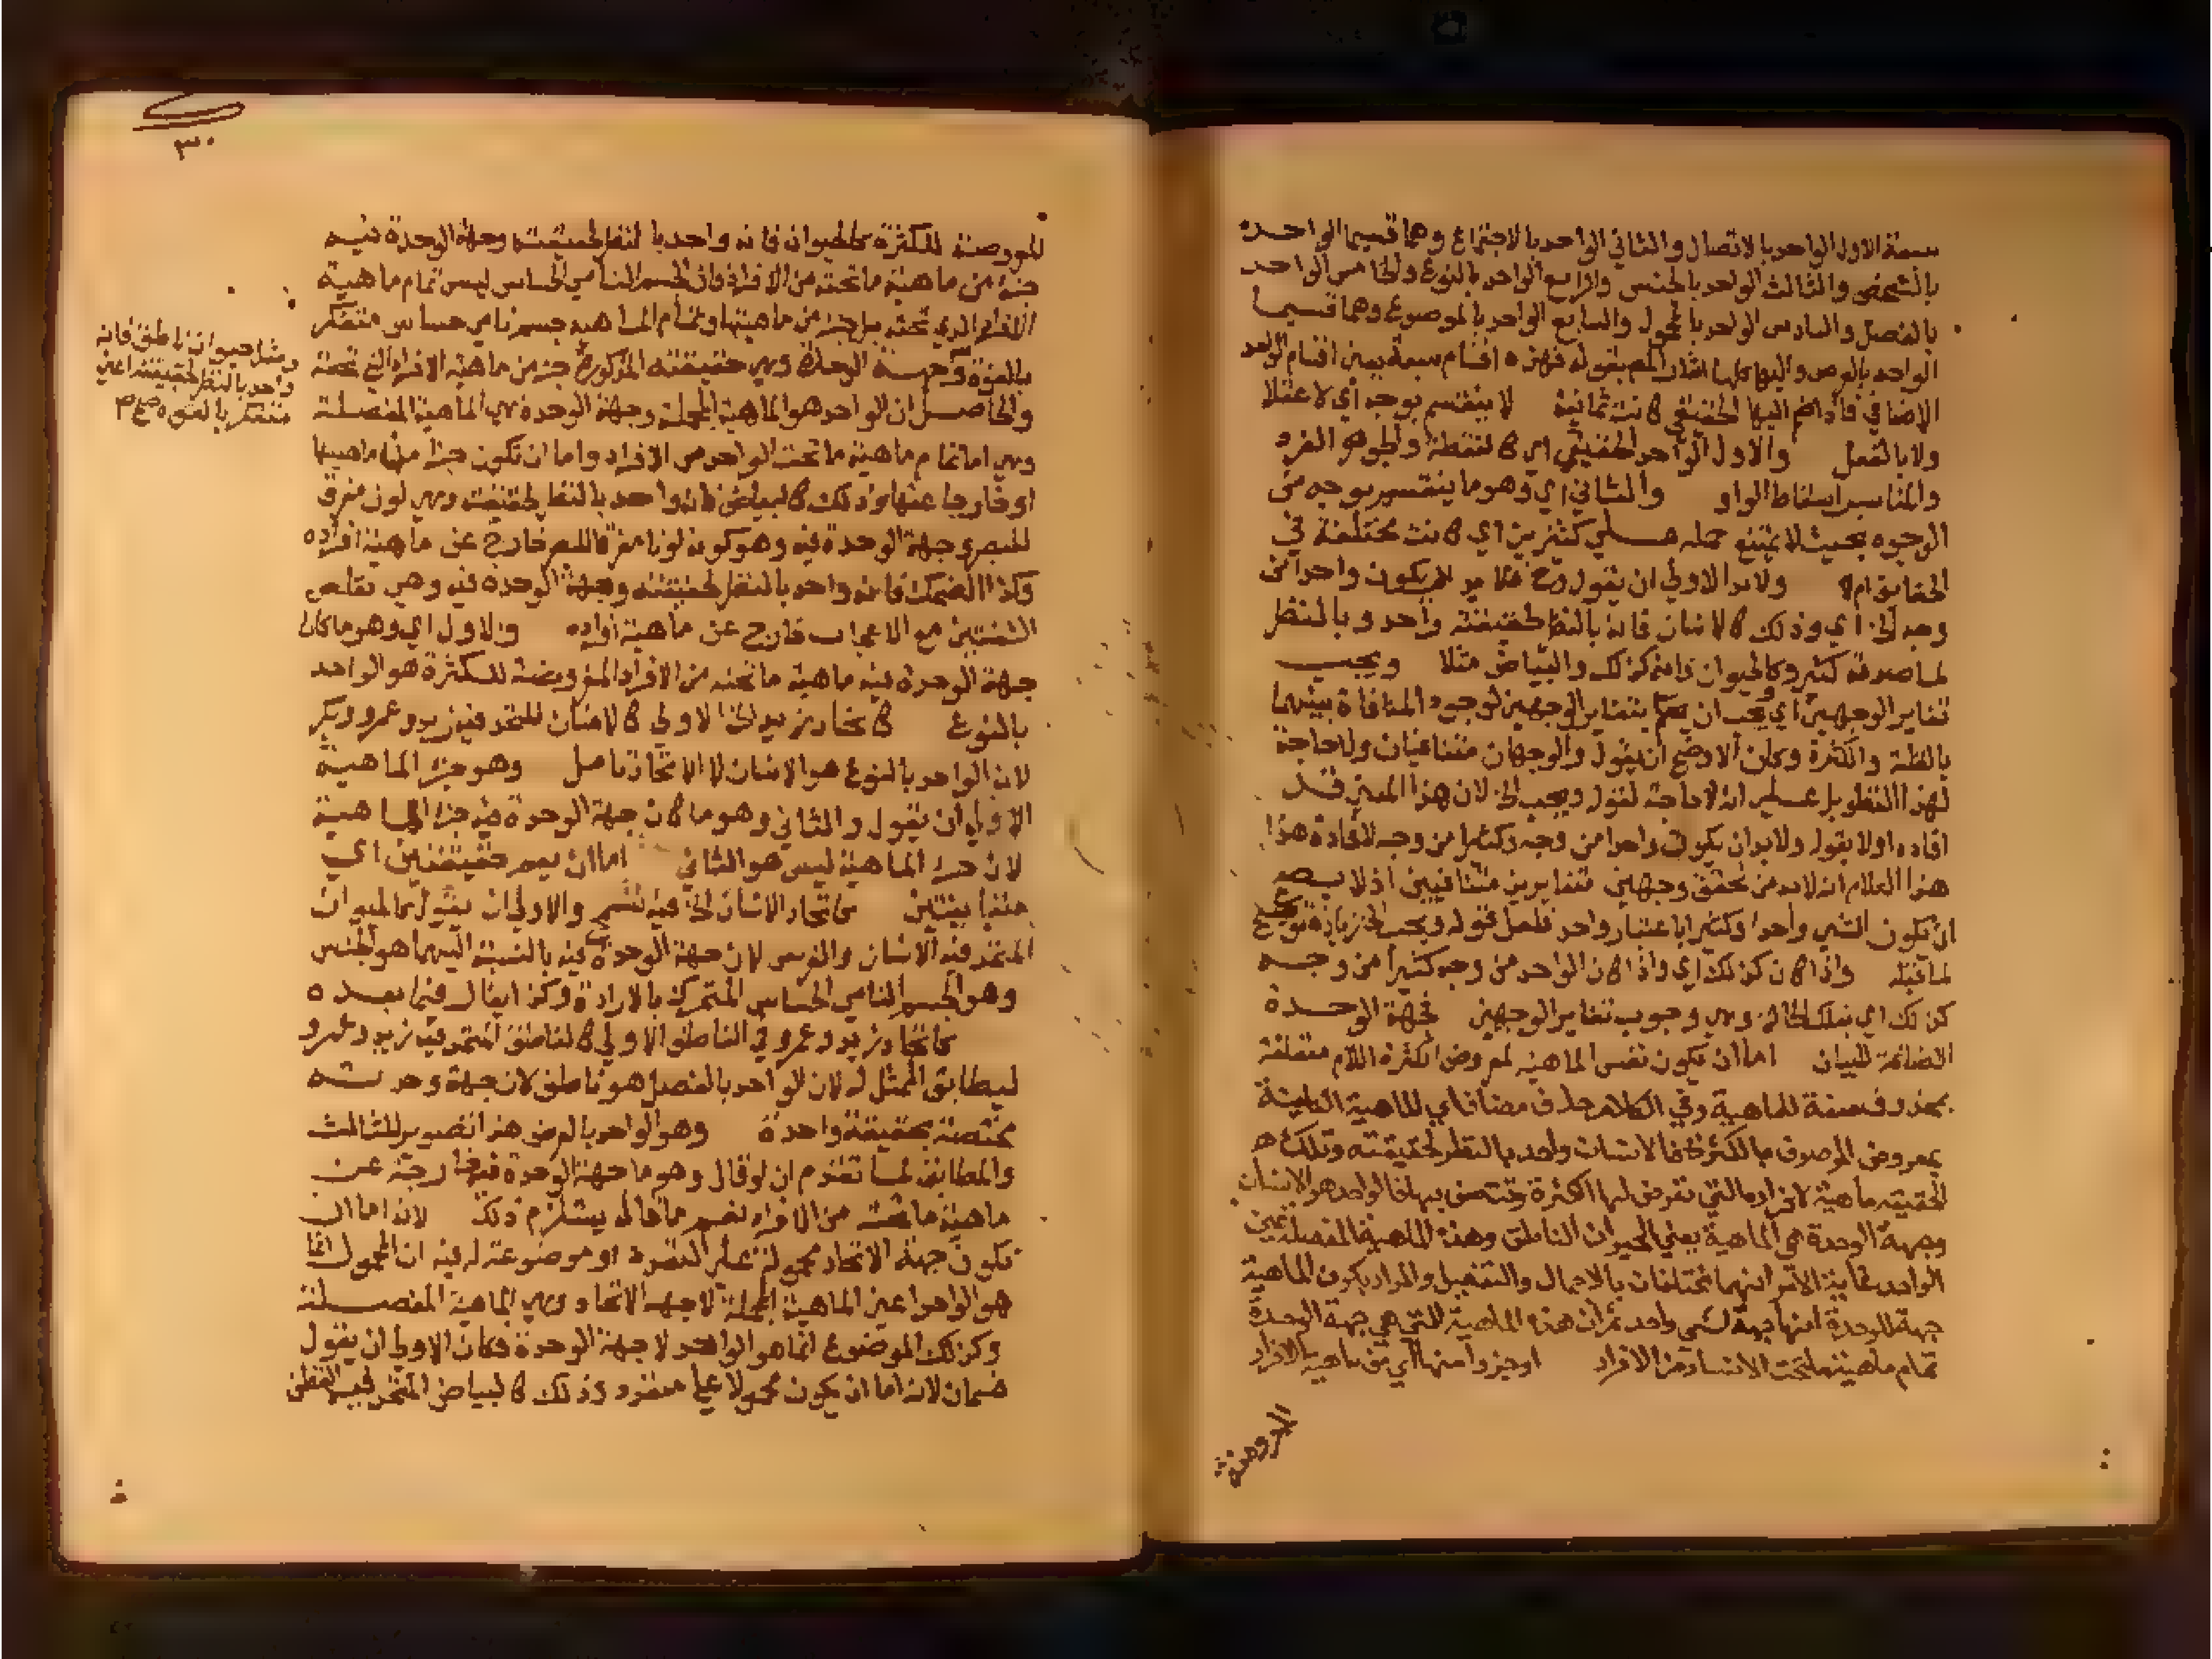 سبعة الاول الواحد بالاتصال والثاني الواحد بالاجتماع وهما قسيما الواحد
بالشخص والثالث الواحد بالجنس والرابع الواحد بالنوع والخامس الواحد
بالفصل والسادس الواحد بالمحمول والسابع الواحد بالموضوع وهما قسيما
الواحد بالعرض واليها كلها اشار المص بقوله فهذه اقسام سبعة يعني اقسام الواحد
الاضافي فاذا ضم اليها الحقيقي كانت ثمانية لا ينقسم بوجه أي لا عقلا
ولا بالفعل والاول الواحد الحقيقي اي كالنقطة والجوهر الفرد
والمناسب اسقاط الواو والثاني اي وهو ما ينقسم بوجه من
الوجوه بحيث لا يمتنع حمله على كثيرين اي كانت مختلفة في
الحقايق ام لا ولابد الاولي ان يقول لابد ان يكون واحدا من
وجه الخ اي وذلك كالانسان فانه بالنظر لحقيقته واحد وبالنظر
لما صدقه كثير وكالحيوان فانه كذلك والبياض مثلا ويجب
تغاير الوجهين أي يجب ان يتغاير الوجهين لوجود المنافاة بينهما
بالقلة والكثرة وكان الاوضح أن يقول والوجهان متنافيان ولا حاجة
لهذا التطويل على انه لا حاجة لقوله ويجب الخ لان هذا المعنى قد
افاده اولا بقوله ولابد ان يكون واحدا من وجه وكثيرا من وجه لافادة هذا
هذا الكلام انه لابد من تحقق وجهين متغايرين متنافيين اذ لا يصح
ان يكون الشي واحدا وكثيرا باعتبار واحد فلعل قوله ويجب الخ زيادة توضيح
لما قبله واذا كان كذلك اي واذا كان الواحد من وجه كثيرا من وجه
كذلك اي بتلك الحالة وهي وجوب تغاير الوجهين فجهة الوحدة
الاضافة للبيان اما أن تكون نفس الماهية لمعروض الكثرة اللام متعلقة
بمحذوف صفة للماهية وفي الكلام حذف مضاف اي للماهية الكاينة
بمعروض الموصوف بالكثرة فالانسان واحد بالنظر لحقيقته وتلك
الحقيقه ماهية لافراده التي تعرض لها الكثرة وتتصف بها فالواحد هو الانسان
وجهة الوحدة هي الماهية يعني الحيوان الناطق وهذه الماهية المفصلة عين
الواحد غاية الامر انهما مختلفان بالاجمال والتفصيل والمراد بكون الماهية
جهة للوحدة أنها جهة لشي واحد ثم ان هذه الماهية التي هي جهة الوحدة
تمام ماهية ما تحت الانسان من الافراد او جزوا منها أي من ماهية الافراد
المعروضة
٣٠
المعروضة للكثرة كالحيوان فانه واحد بالنظر لحقيقته وجهة الوحدة فيه
جزء من ماهية ما تحته من الافراد فان الجسم النامي الحساس ليس تمام ماهية
الافراد الذي تحته بل جزء من ماهيتها وتمام الماهيه جسم نامي حساس متفكر
بالقوة وجهة الوحدة وهي حقيقته المذكورة جزء من ماهية الافراد التي تحته
والحاصل ان الواحد هو الماهية المجملة وجهة الوحدة هي الماهية المفصلة
وهي اما تمام ماهية ما تحت الواحد من الافراد واما ان تكون جزا من ماهيتها
او خارجا عنها وذلك كالبياض فانه واحد بالنظر لحقيقته وهي لون مفرق
للبصر وجهة الوحدة فيه وهو كونه لونا مفرقا للبصر خارج عن ماهية افراده
وكذا الضحك فانه واحد بالنظر لحقيقته وجهة الوحدة فيه وهي تقلص
الشفتين مع الاعجاب خارج عن ماهية افراده والاول اي وهو ما كان
جهة الوحدة فيه ماهية ما تحته من الافراد المعروضة للكثرة هو الواحد
بالنوع كاتحاد زيد الخ الاولي كالانسان المتحد فيه زيد وعمرو وبكر
لان الواحد بالنوع هو الانسان لا الاتحاد تامل وهو جزء الماهية
الاولي أن يقول والثاني وهو ما كان جهة الوحدة فيه جزء الماهية
لان جزء الماهية ليس هو الثاني اما ان يعم حقيقتين اي
متباينتين كاتحاد الانسان الخ فيه تسمح والاولي ان يقول كالحيوان
المتحد فيه الانسان والفرس لان جهة الوحدة فيه بالنسبة اليهما هو الجنس
وهو الجسم النامي الحساس المتحرك بالارادة وكذا يقال فيما بعده
كاتحاد زيد وعمرو في الناطق الاولي كالناطق المتحد فيه زيد وعمرو
ليطابق الممثل له لان الواحد بالفصل هو ناطق لان جهة وحدته
مختصة بحقيقة واحدة وهو الواحد بالعرض هذا تصوير للثالث
والمطابق لما تقدم ان لو قال وهو ما جهة الوحدة فيه خارجة عن
ماهية ما تحته من الافراد نعم ما قاله يستلزم ذلك لانه اما ان
تكون جهة الاتحاد محمولة على المتعدده او موضوعة له فيه ان المحمول انما
هو الواحد اعني الماهية المجملة لا جهة الاتحاد وهي الماهية المفصلة
وكذلك الموضوع انما هو الواحد لا جهة الوحدة فكان الاولي ان يقول
ضمان لانه اما ان يكون محمولا على متعدد وذلك كالبياض المتحد فيه القطن
ومثل حيوان ناطق فانه
واحد بالنظر لحقيقته اعني
متفكر بالقوه صح م